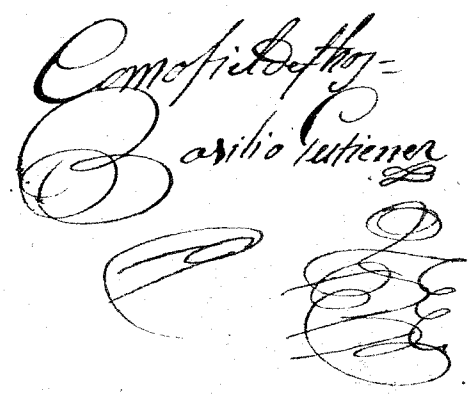 Como fiel de fhos=
Basilio Gutierrez